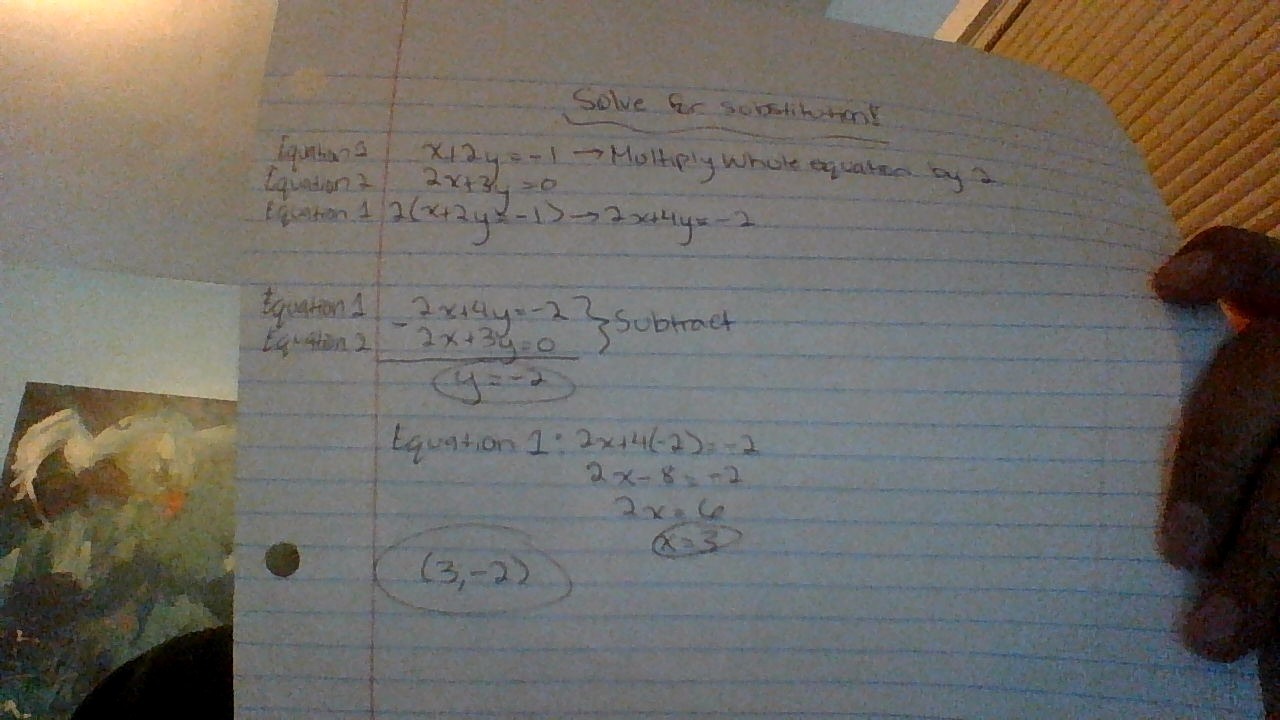 Solve for substitution!
Equation 1 x+2y=-1 → Multiply whole equation by 2
Equation 2 2x+3y=0
Equation 1 2(x+2y=-1) → 2x+4y=-2
Equation 1 - 2x+4y=-2 } Subtract
Equation 2 2x+3y=0
y=-2
Equation 1: 2x+4(-2)=-2
2x-8=-2
2x=6
x=3
(3,-2)